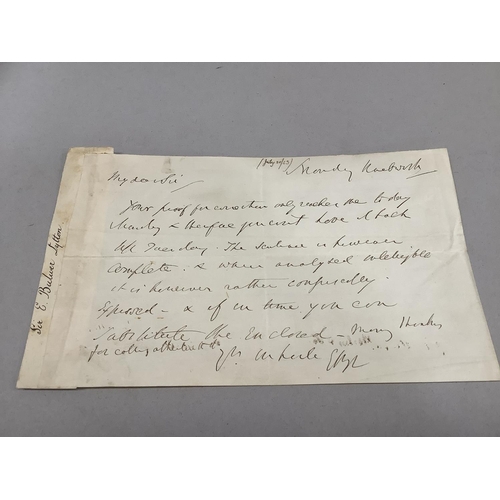 (July 10/53)
Monday Knebworth
My dear Sir
Your proof for correction only reached me to day
Monday & therefore you cannot have it back
till Tuesday. The sentence is however
complete. & when analysed intelligible
it is however rather confusedly
expressed - & if in time you can
substitute the enclosed - Many thanks
for calling attention to it
Yrs truly EBL
Sir E. Bulwer Lytton